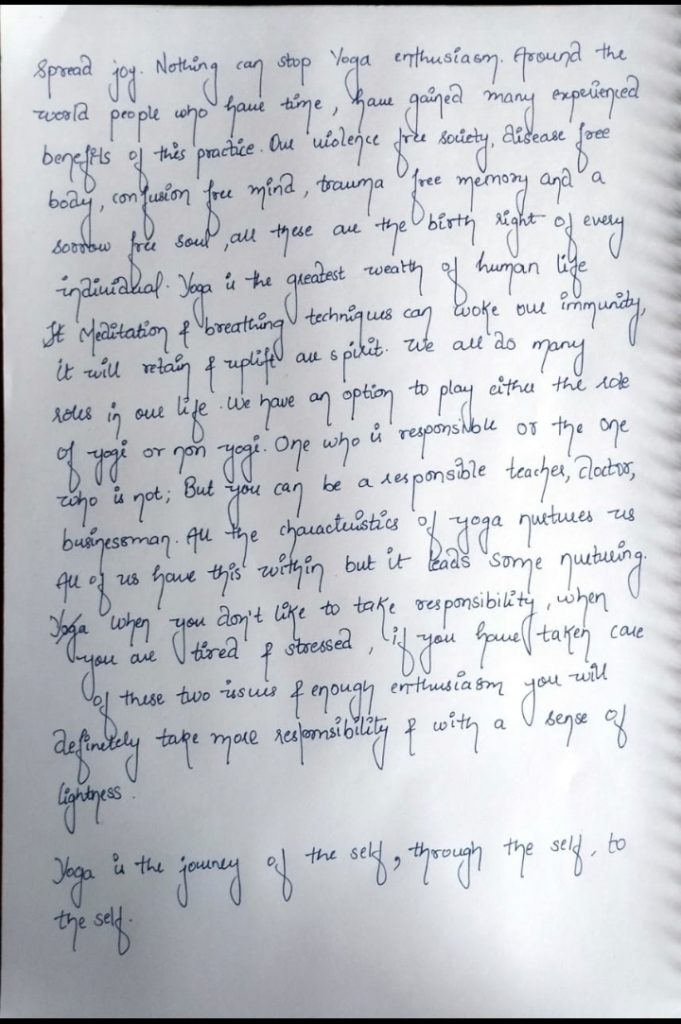 Spread joy. Nothing can stop Yoga enthusiasm. Around the
world people who have time, have gained many experienced
benefits of this practice. Our violence free society, disease free
body, confusion free mind, trauma free memory and a
sorrow free soul, all these are the birth right of every
individual. Yoga is the greatest wealth of human life
It Meditation & breathing techniques can woke our immunity,
it will retain & uplift our spirit. We all do many
roles in our life. We have an option to play either the role
of yogi or non yogi. One who is responsible or the one
who is not; But you can be a responsible teacher, doctor,
businessman. All the characteristics of yoga nurtures us
All of us have this within but it leads some nurturing.
Yoga when you don't like to take responsibility, when
you are tired & stressed, if you have taken care
of these two issues & enough enthusiasm you will
definetely take more responsibility & with a sense of
lightness.
Yoga is the journey of the self, through the self, to
the self.